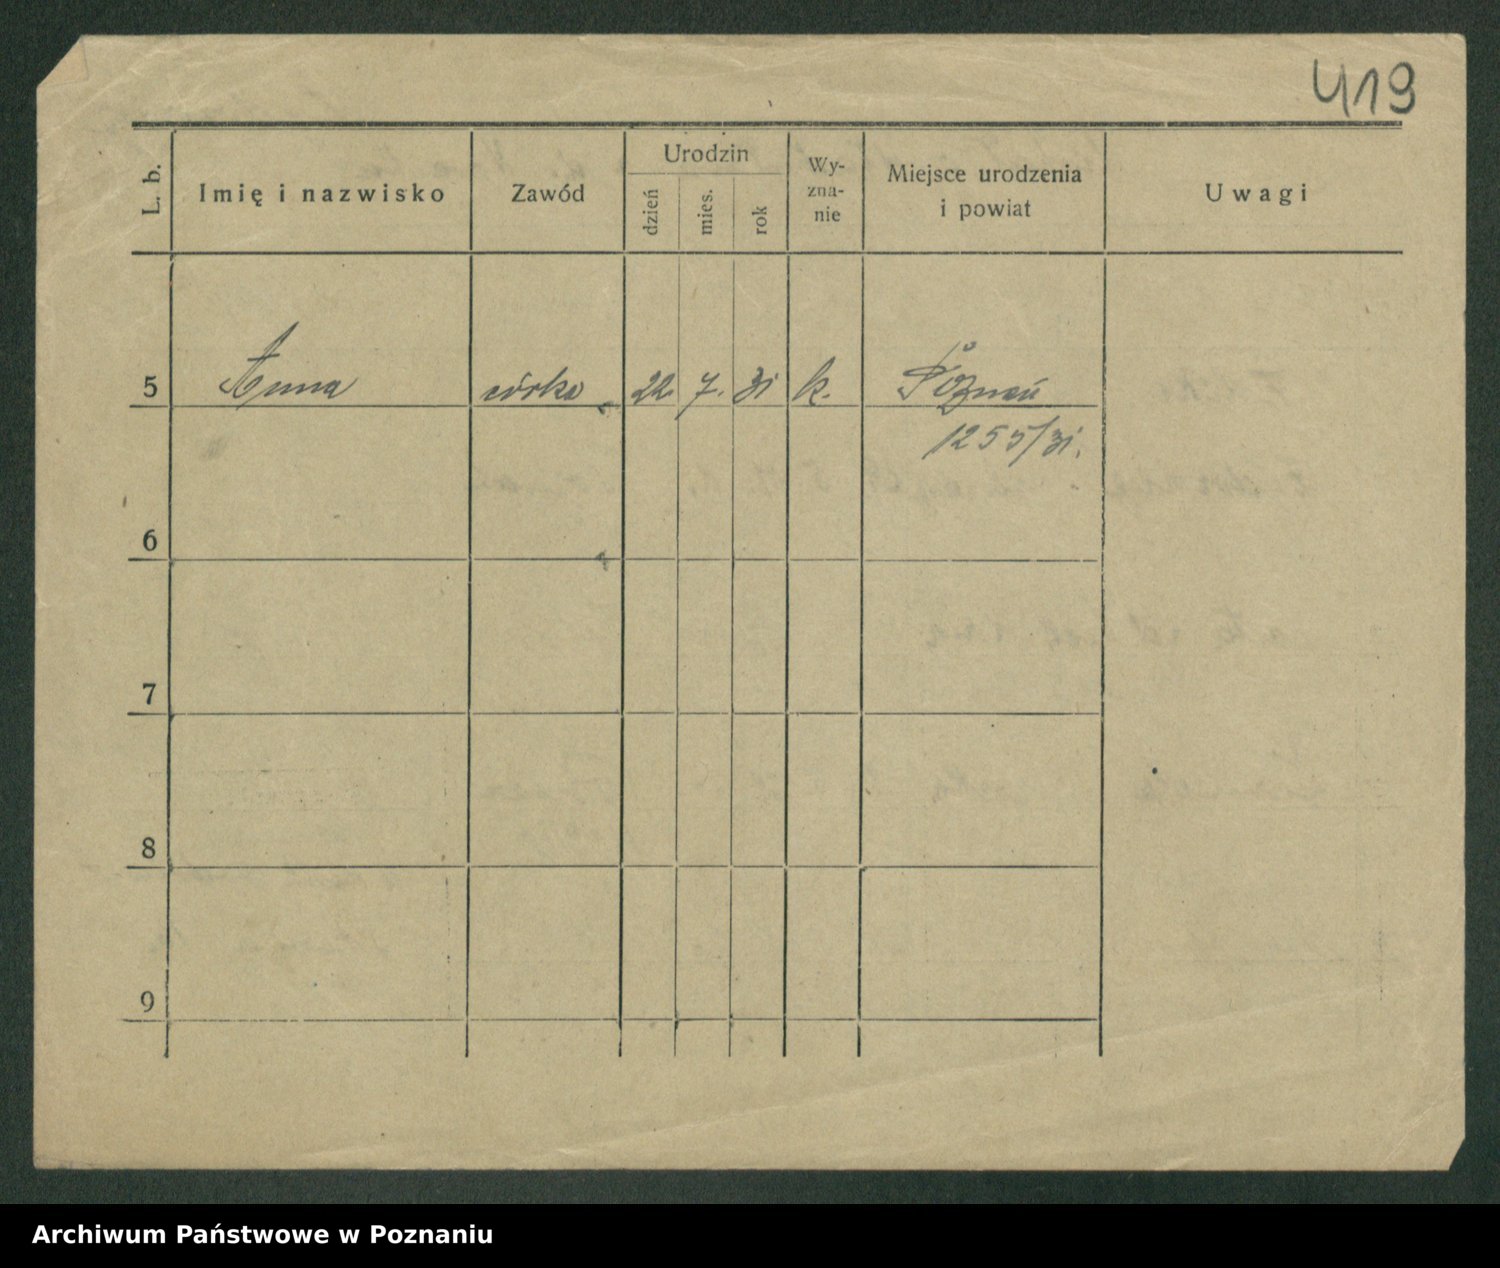 419
L. b. Imię i nazwisko Zawód Urodzin dzień mies. rok Wy-zna-nie Miejsce urodzenia i powiat Uwagi
5 Anna córka 22. 7. 31 k. Poznań
1255/31.
6
7
8
9
Archiwum Państwowe w Poznaniu